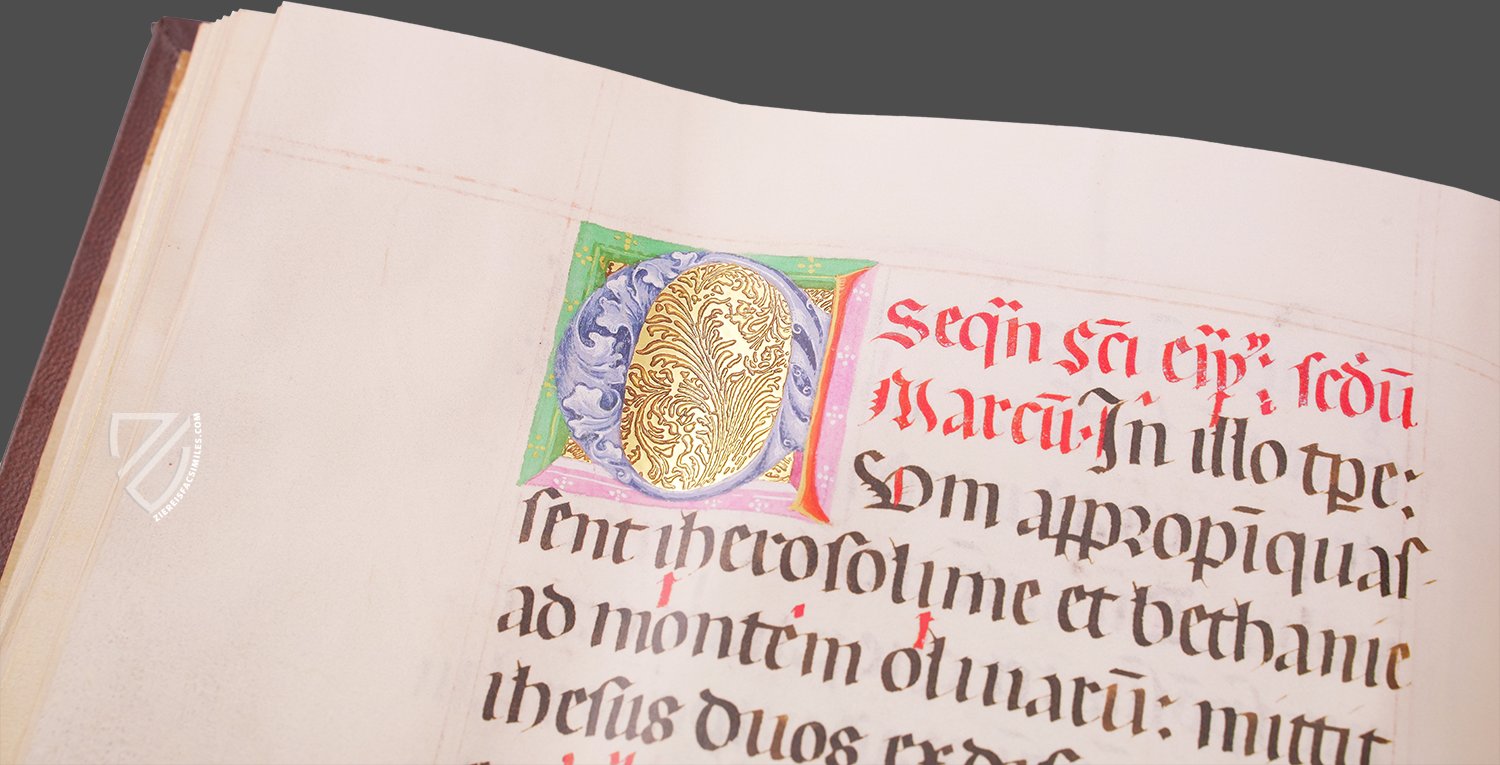 Seqn̄ sc̄i eu̅ : scdū
Marcū. In illo tp̄e:
Q Vm appropīquas
sent iherosolime et bethanie
ad montem oliuarū: mittit
ihesus duos ex dis
ZIEREISFACSIMILES.COM